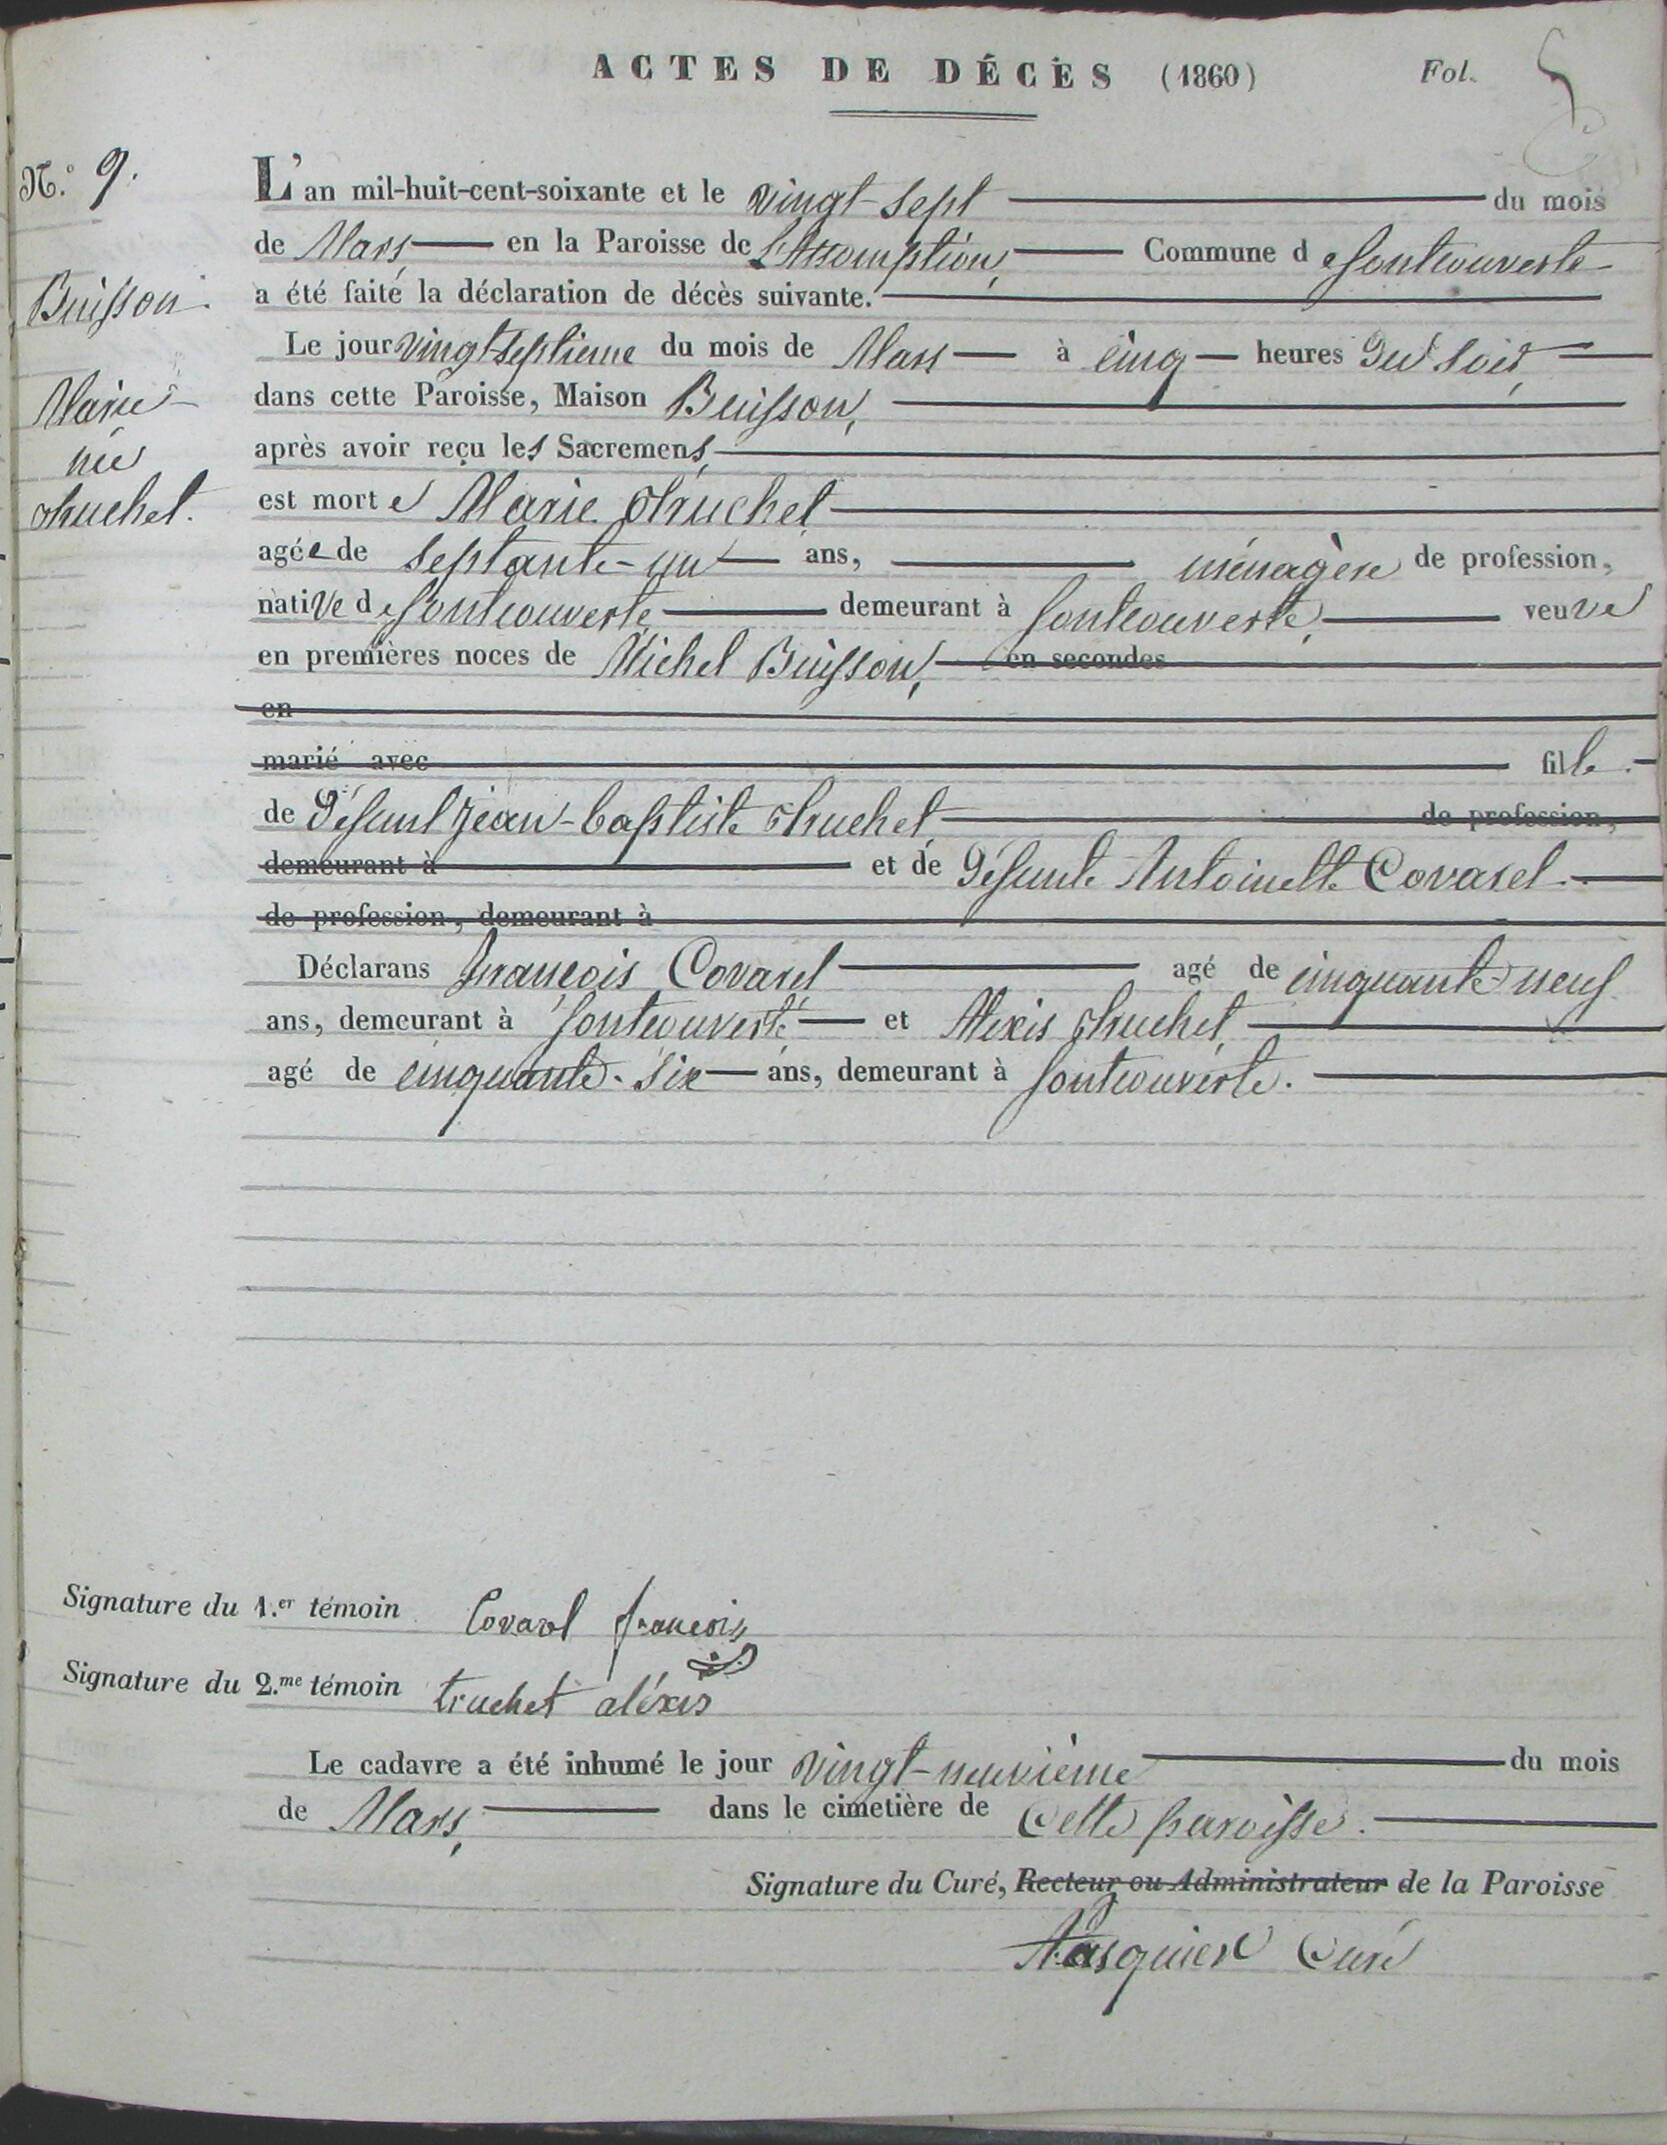 ACTES DE DÉCÈS (1860) Fol. 5
N.° 9.
L'an mil-huit-cent-soixante et le vingt-sept du mois
de Mars en la Paroisse de l'Assomption, Commune de fontcouverte
Buisson a été faite la déclaration de décès suivante.
Le jour vingt-septieme du mois de Mars à cinq heures du soir,
Marie dans cette Paroisse, Maison Buisson,
née après avoir reçu les Sacremens,
truchet. est morte Marie truchet
agée de septante-un ans, ménagère de profession,
native de fontcouverte demeurant à fontcouverte, veuve
en premières noces de Michel Buisson, en secondes
en
marié avec fille
de Défunt Jean-baptiste truchet, de profession,
demeurant à et de Défunte Antoinette Covarel
de profession, demeurant à
Déclarans françois Covarel agé de cinquante-neuf
ans, demeurant à fontcouverte et Alexis truchet,
agé de cinquante-six ans, demeurant à fontcouverte.
Signature du 1.er témoin Covarel francois
Signature du 2.me témoin truchet aléxis
Le cadavre a été inhumé le jour vingt-neuvième du mois
de Mars, dans le cimetière de Cette paroisse.
Signature du Curé, Recteur ou Administrateur de la Paroisse
Pasquier Curé